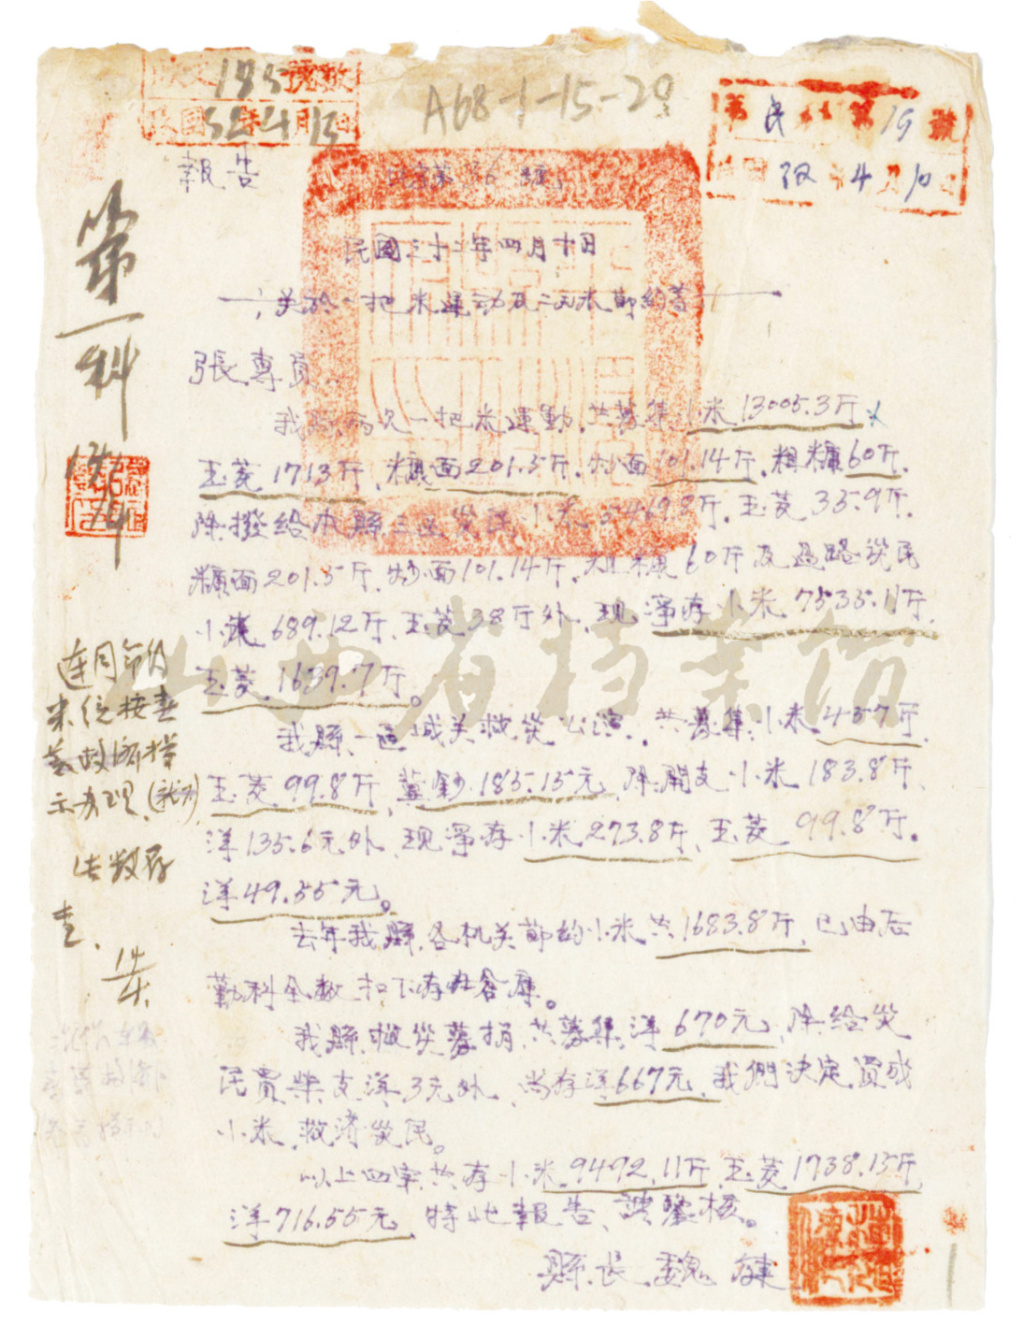 收文 195 號數
民國32年4月13日
A68-1-15-29
第 民 第 19 號
32 4 10
報告
民字第 36 號
民國三十二年四月十日
關於一把米運动及二兩米節約等
張專員
我縣兩次一把米運動,共募集小米13005.3斤
玉茭1713斤.糠面201.5斤.炒面101.14斤.粗糠60斤.
除撥給本縣三區災民小米5469.8斤.玉茭35.9斤.
糠面201.5斤.炒面101.14斤.粗糠60斤及過路災民
小米689.12斤.玉茭38斤外,現淨存小米7535.11斤.
玉茭.1639.7斤。
我縣一區城关救災公演,共募集小米457斤.
玉茭99.8斤,藍鈔185.15元,除開支小米183.8斤、
洋135.6元外、現淨存小米273.8斤、玉茭99.8斤。
洋49.55元。
去年我縣各机关節約小米共1683.8斤,已由后
勤科全数扣下存在倉庫。
我縣救災募捐共募集洋670元,除給災
民買柴支洋3元外、尚存洋667元,我們決定買成
小米,救濟災民。
以上四宗共存小米9492.11斤,玉茭1738.15斤
洋716.55元,特此報告、請鑒核。
縣長 魏健
第一科
連同節約
米统按春
荒救濟指
示办理.
告数存
查.
山西省档案馆